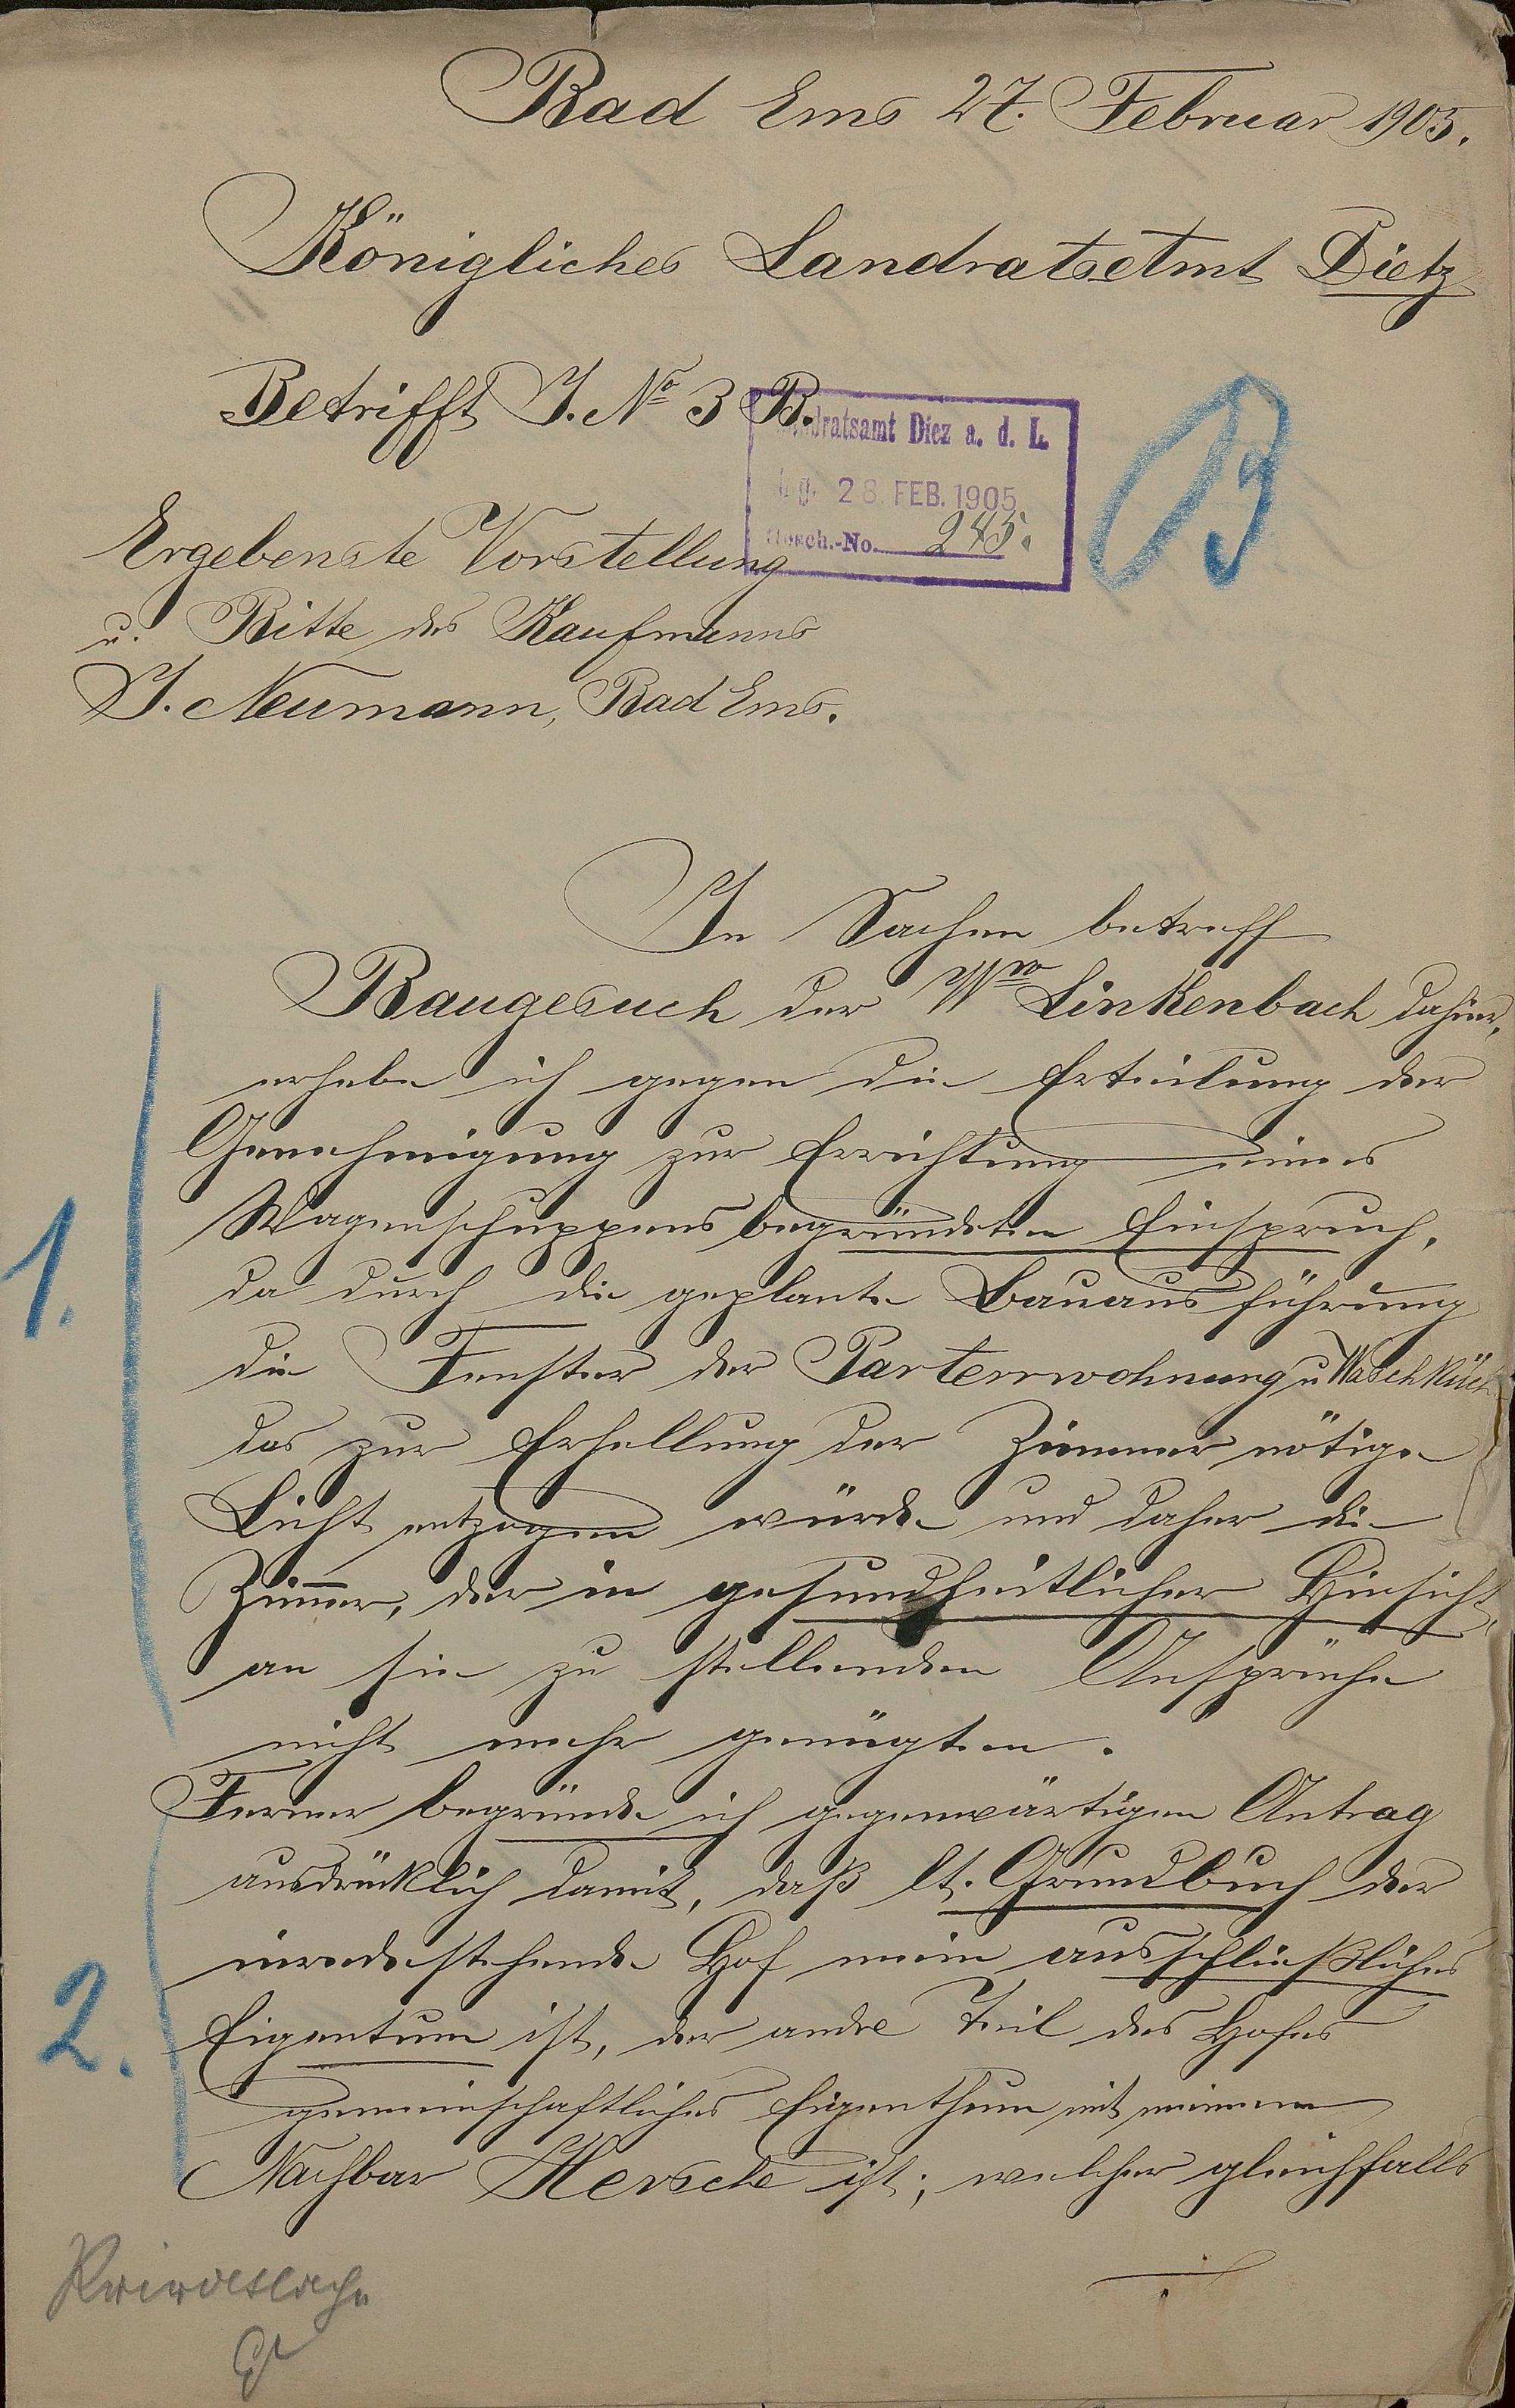 Bad Ems 27. Februar 1905.
Königliches Landratsamt Dietz
Betrifft J. No 3 B.
Landratsamt Diez a. d. L.
Eing. 28. FEB. 1905
Gesch.-No. 245.
B
Ergebenste Vorstellung
u. Bitte des Kaufmanns
J. Neumann, Bad Ems.
In Sachen betreff
Baugesuch der Wwe Linkenbach dahier,
erhebe ich gegen die Erteilung der
Genehmigung zur Errichtung eines
Wagenschuppens begründeten Einspruch,
1.
da durch die geplante Bauausführung
die Fenster der Parterrwohnung u Waschküche
das zur Erhellung der Zimmer nötige
Licht entzogen würde und daher die
Zimmer, der in gesundheitlicher Hinsicht,
an sie zu stellenden Ansprüche
nicht mehr genügten.
Ferner begründe ich gegenwärtigen Antrag
ausdrücklich damit, daß lt. Grundbuch der
inredestehende Hof mein ausschließliches
2.
Eigentum ist, der andre Teil des Hofes
gemeinschaftliches Eigenthum mit meinem
Nachbar Hersche ist; welcher gleichfalls